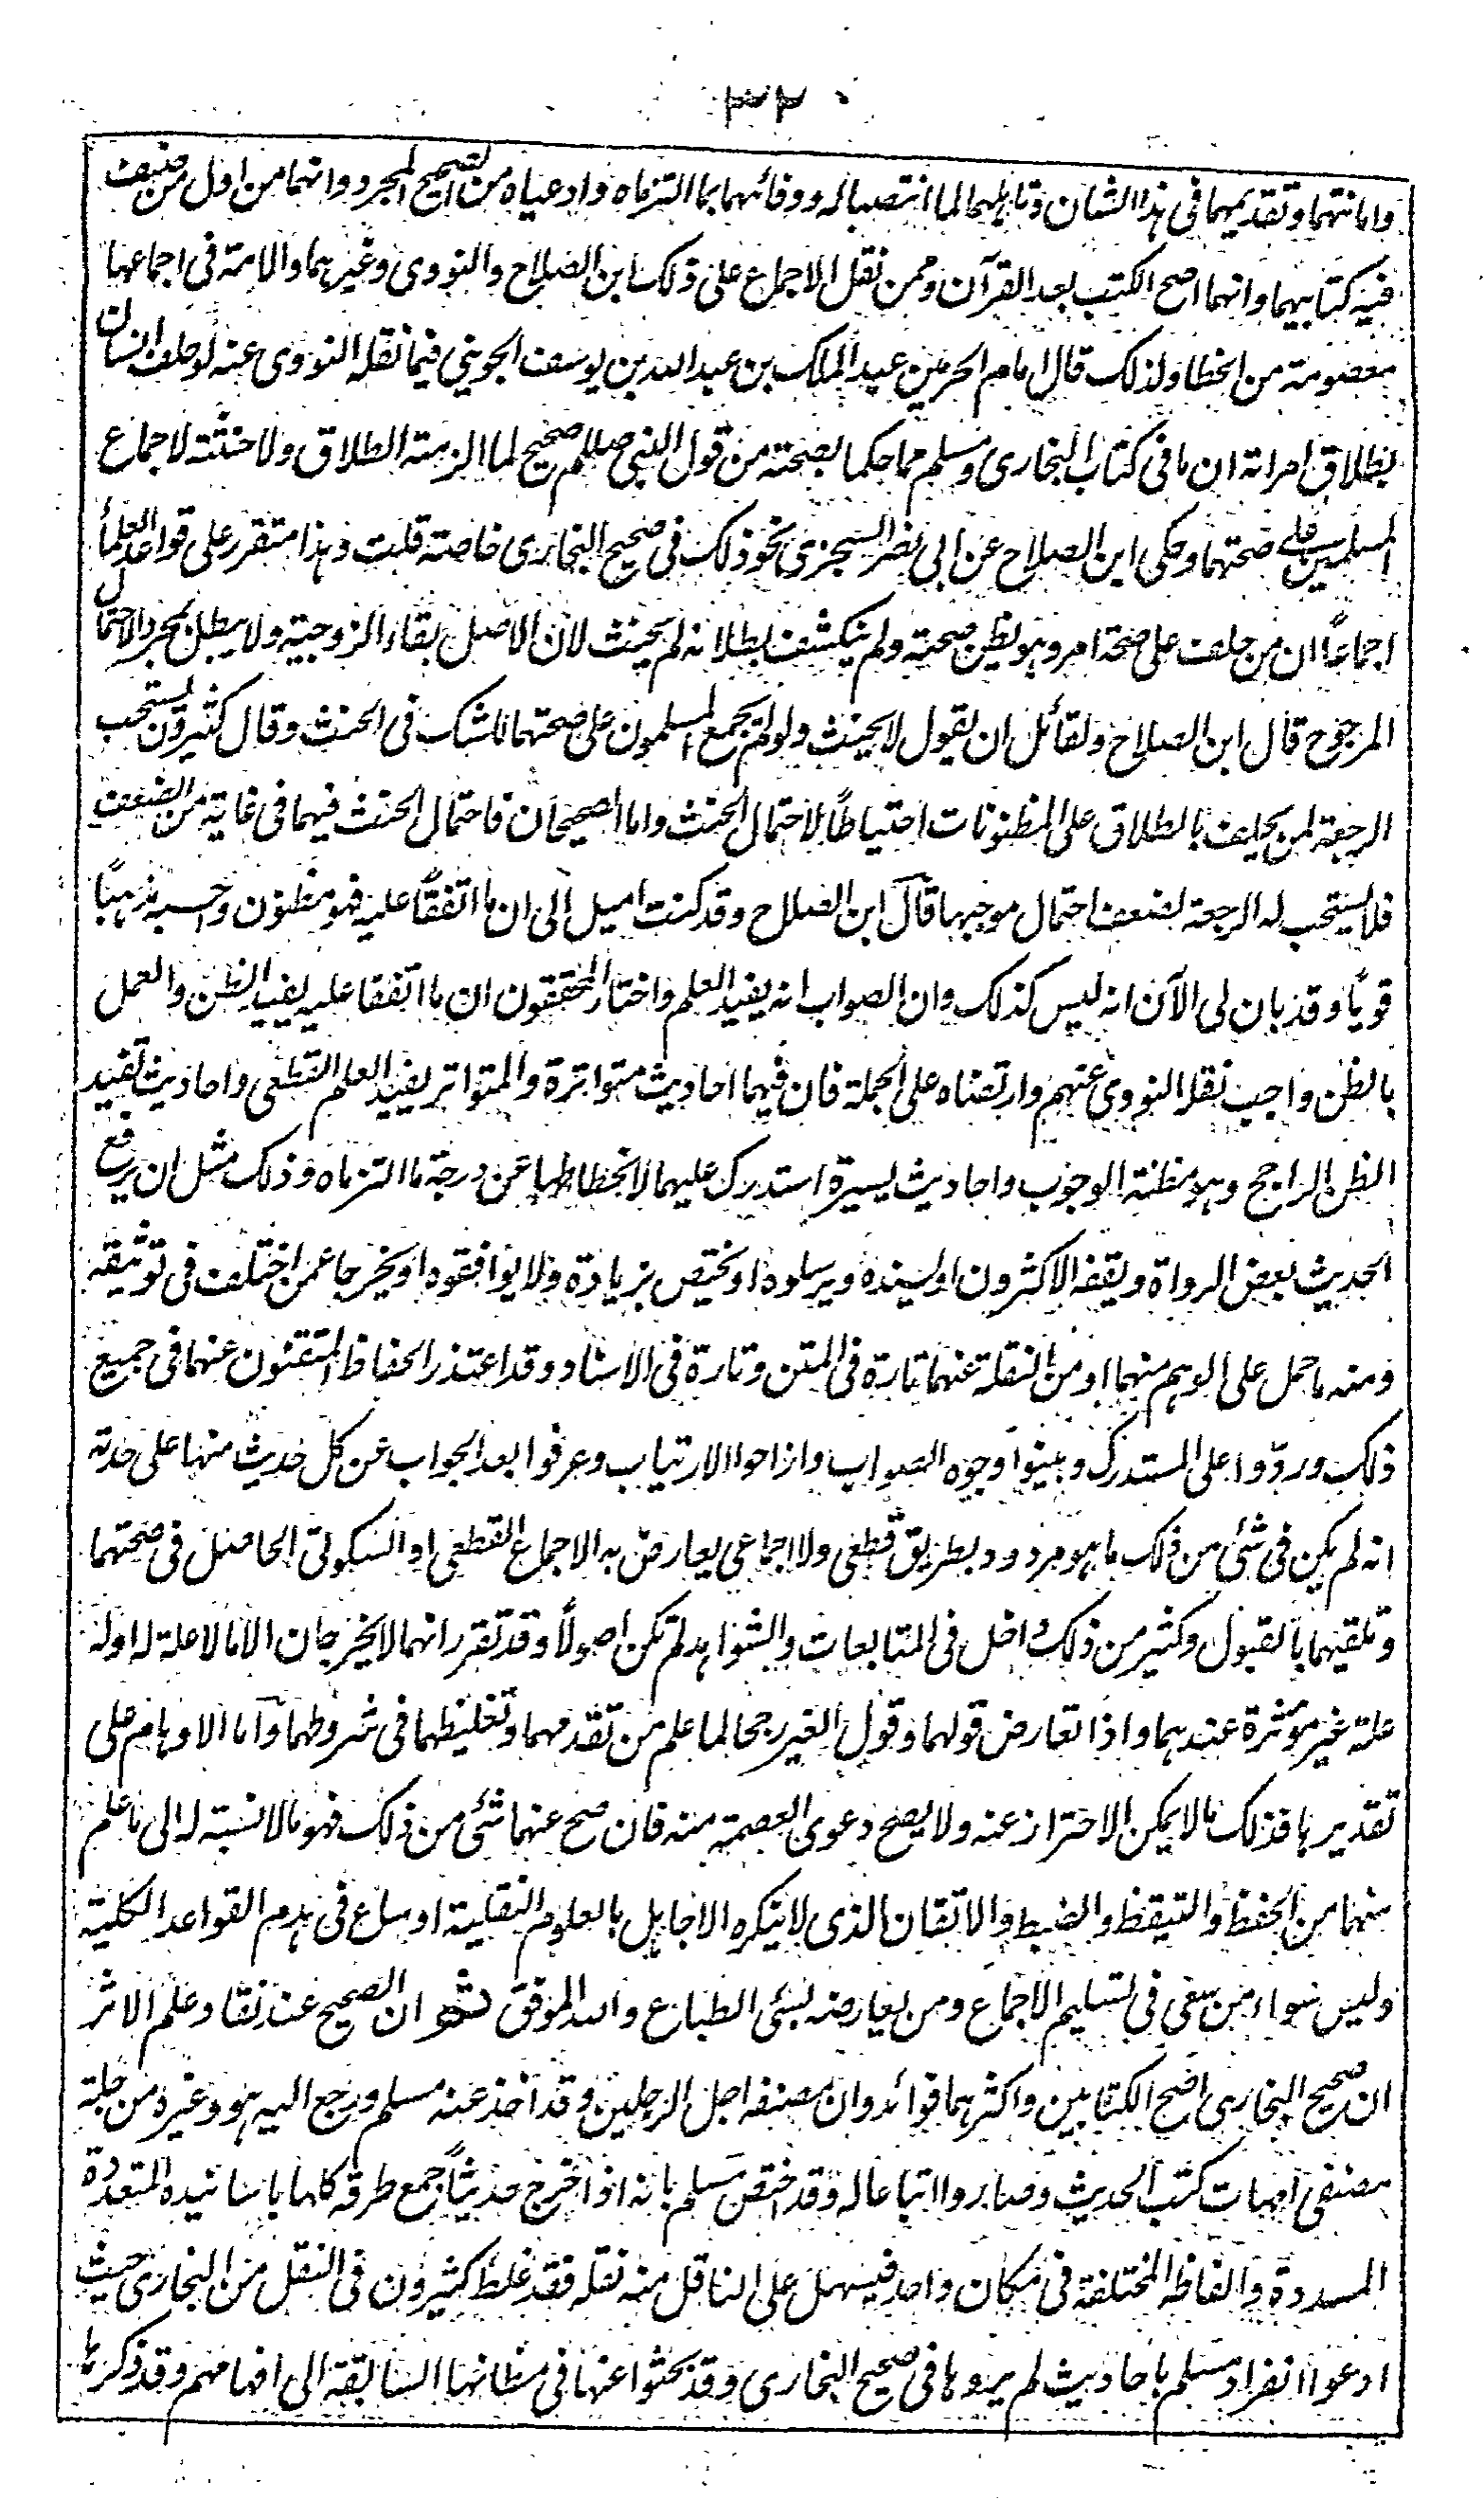 ٣٢
وامانتهما وتقديمهما فى هذا الشان وتاهلهما لما انتصبا له ووفائهما بما التزماه وادعياه من الصحيح المجرد وانهما من اول من صنف
فيه كتابيهما وانهما اصح الكتب بعد القرآن وممن نقل الاجماع على ذلك ابن الصلاح والنووى وغيرهما والامة فى اجماعها
معصومة من الخطا ولذلك قال امام الحرمين عبد الملك بن عبد الله بن يوسف الجوينى فيما نقله النووى عنه لو حلف انسان
بطلاق امراته ان ما فى كتاب البخارى ومسلم مما حكما بصحته من قول النبى صللم صحيح لما الزمته الطلاق ولا حنثته لاجماع
المسلمين على صحتهما وحكى ابن الصلاح عن ابى نصر السجزى نحو ذلك فى صحيح البخارى خاصة قلت وهذا متقرر على قواعد العلمأ
اجماعاً ان من حلف على صحة امر وهو يظن صحته ولم ينكشف بطلانه لم يحنث لان الاصل بقاء الزوجية ولا يبطل بمجرد الاحتمال
المرجوح قال ابن الصلاح ولقائل ان يقول لا يحنث ولو لم يجمع المسلمون على صحتهما للشك فى الحنث وقال كثيرون يستحب
الرجعة لمن يحلف بالطلاق على المظنونات احتياطاً لاحتمال الحنث واما الصحيحان فاحتمال الحنث فيهما فى غاية من الضعف
فلا يستحب له الرجعة لضعف احتمال موجبها قال ابن الصلاح وقد كنت اميل الى ان ما اتفقا عليه فهو مظنون واحسبه مذهبًا
قويًا وقد بان لى الآن انه ليس كذلك وان الصواب انه يفيد العلم واختار المحققون ان ما اتفقا عليه يفيد الظن والعمل
بالظن واجب نقله النووى عنهم وارتضاه على الجملة فان فيهما احاديث متواترة والمتواتر يفيد العلم القطعى واحاديث تفيد
الظن الراجح وهو مظنة الوجوب واحاديث يسيرة استدرك عليهما لانحطاطها عن درجة ما التزماه وذلك مثل ان يرفع
الحديث بعض الرواة ويقفه الاكثرون او يسنده ويرسلوه او يختص بزيادة ولا يوافقوه او يخرجا عمن اختلف فى توثيقه
ومنه ما حمل على الوهم منهما او من النقلة عنهما تارة فى المتن وتارة فى الاسناد وقد اعتذر الحفاظ المتقنون عنهما فى جميع
ذلك وردّوا على المستدرك وبينوا وجوه الصواب وازاحوا الارتياب وعرفوا بعد الجواب عن كل حديث منها على حدته
انه لم يكن فى شئ من ذلك ما هو مردود بطريق قطعى ولا اجماعى يعارض به الاجماع القطعى او السكوتى الحاصل فى صحتهما
وتلقيهما بالقبول وكثير من ذلك داخل فى المتابعات والشواهد لم تكن اصولاً وقد تقرر انهما لا يخرجان الا ما لا علة له او له
علة غير موثرة عندهما واذا تعارض قولهما وقول الغير رجحا لما علم من تقدمهما وتغليظهما فى شروطهما واما الاوهام على
تقديرها فذلك مالا يمكن الاحتراز عنه ولا يصح دعوى العصمة منه فان صح عنهما شئ من ذلك فهو مالا نسبة له الى ما علم
منهما من الحفظ والتيقظ والضبط والاتقان الذى لا ينكره الا جاهل بالعلوم النقلية او ساع فى هدم القواعد الكلية
وليس سواء من سعى فى تسليم الاجماع ومن يعارضه بسئ الطباع والله الموفق ثم ان الصحيح عند نقاد علم الاثر
ان صحيح البخارى اصح الكتابين واكثرهما فوائد وان مصنفه اجل الرجلين وقد اخذ عنه مسلم ورجع اليه هو وغيره من جلة
مصنفى امهات كتب الحديث وصاروا اتباعا له وقد اختص مسلم بانه اذا اخرج حديثاً جمع طرقه كلها باسانيده المتعددة
المسددة والفاظه المختلفة فى مكان واحد فيسهل على الناقل منه نقله فقد غلط كثيرون فى النقل من البخارى حيث
ادعوا انفراد مسلم باحاديث لم يروها فى صحيح البخارى وقد بحثوا عنها فى مظانها السابقة الى افهامهم وقد ذكرها